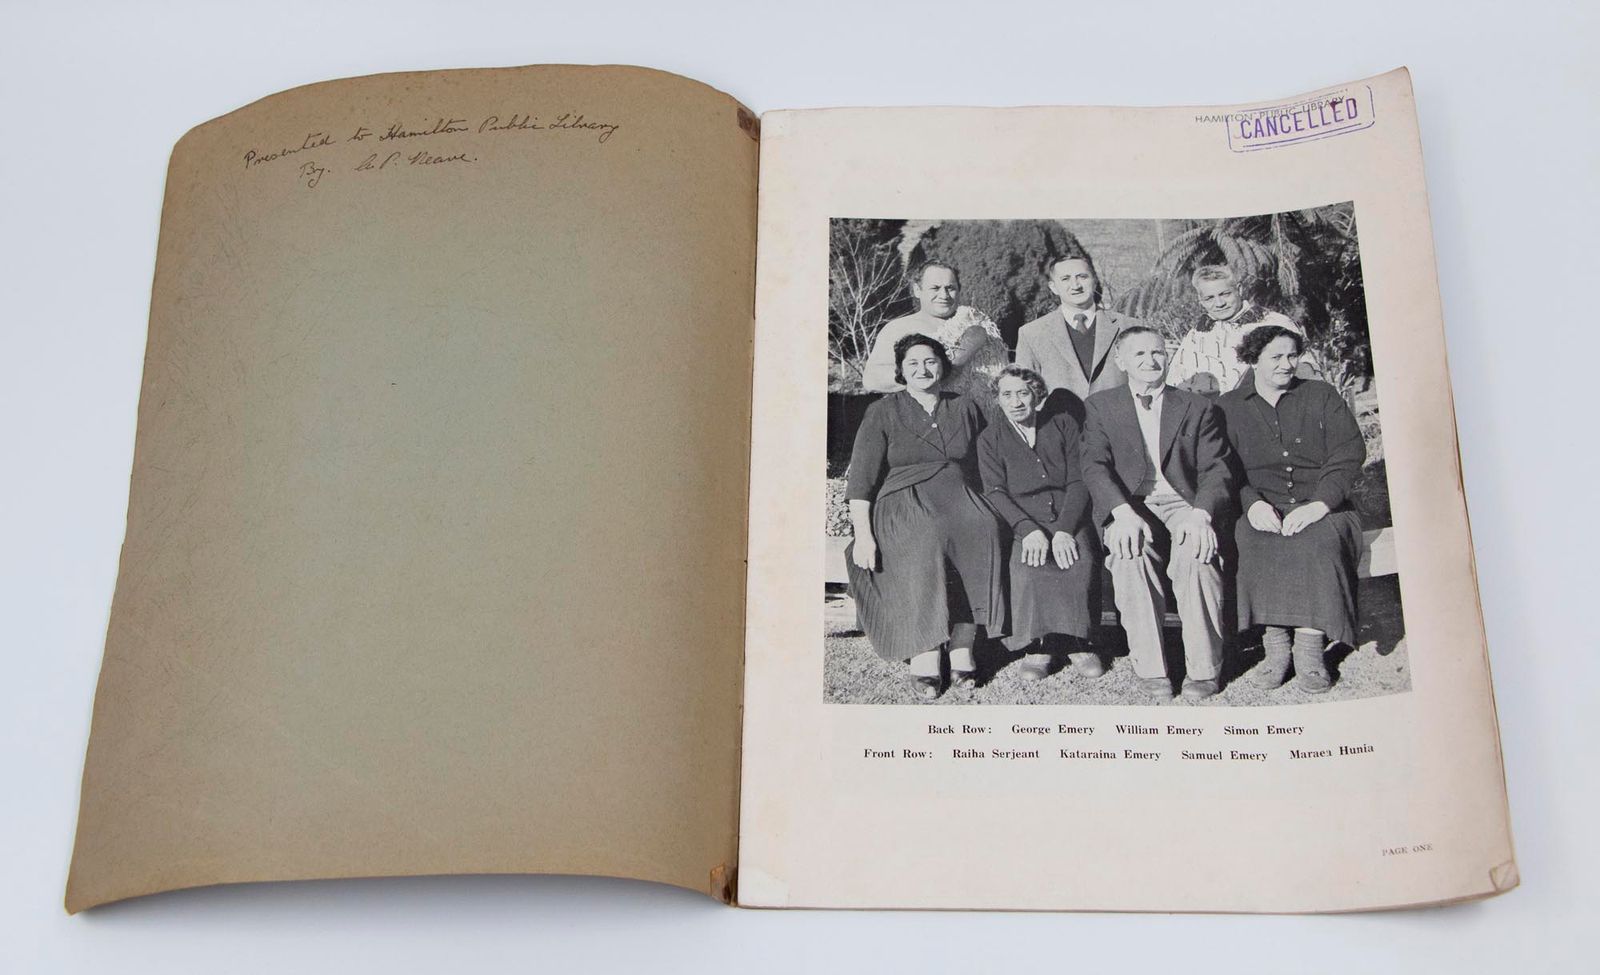 Presented to Hamilton Public Library
By. A. P. Neave.
HAMILTON PUBLIC LIBRARY
CANCELLED
Back Row: George Emery William Emery Simon Emery
Front Row: Raiha Serjeant Kataraina Emery Samuel Emery Maraea Hunia
PAGE ONE